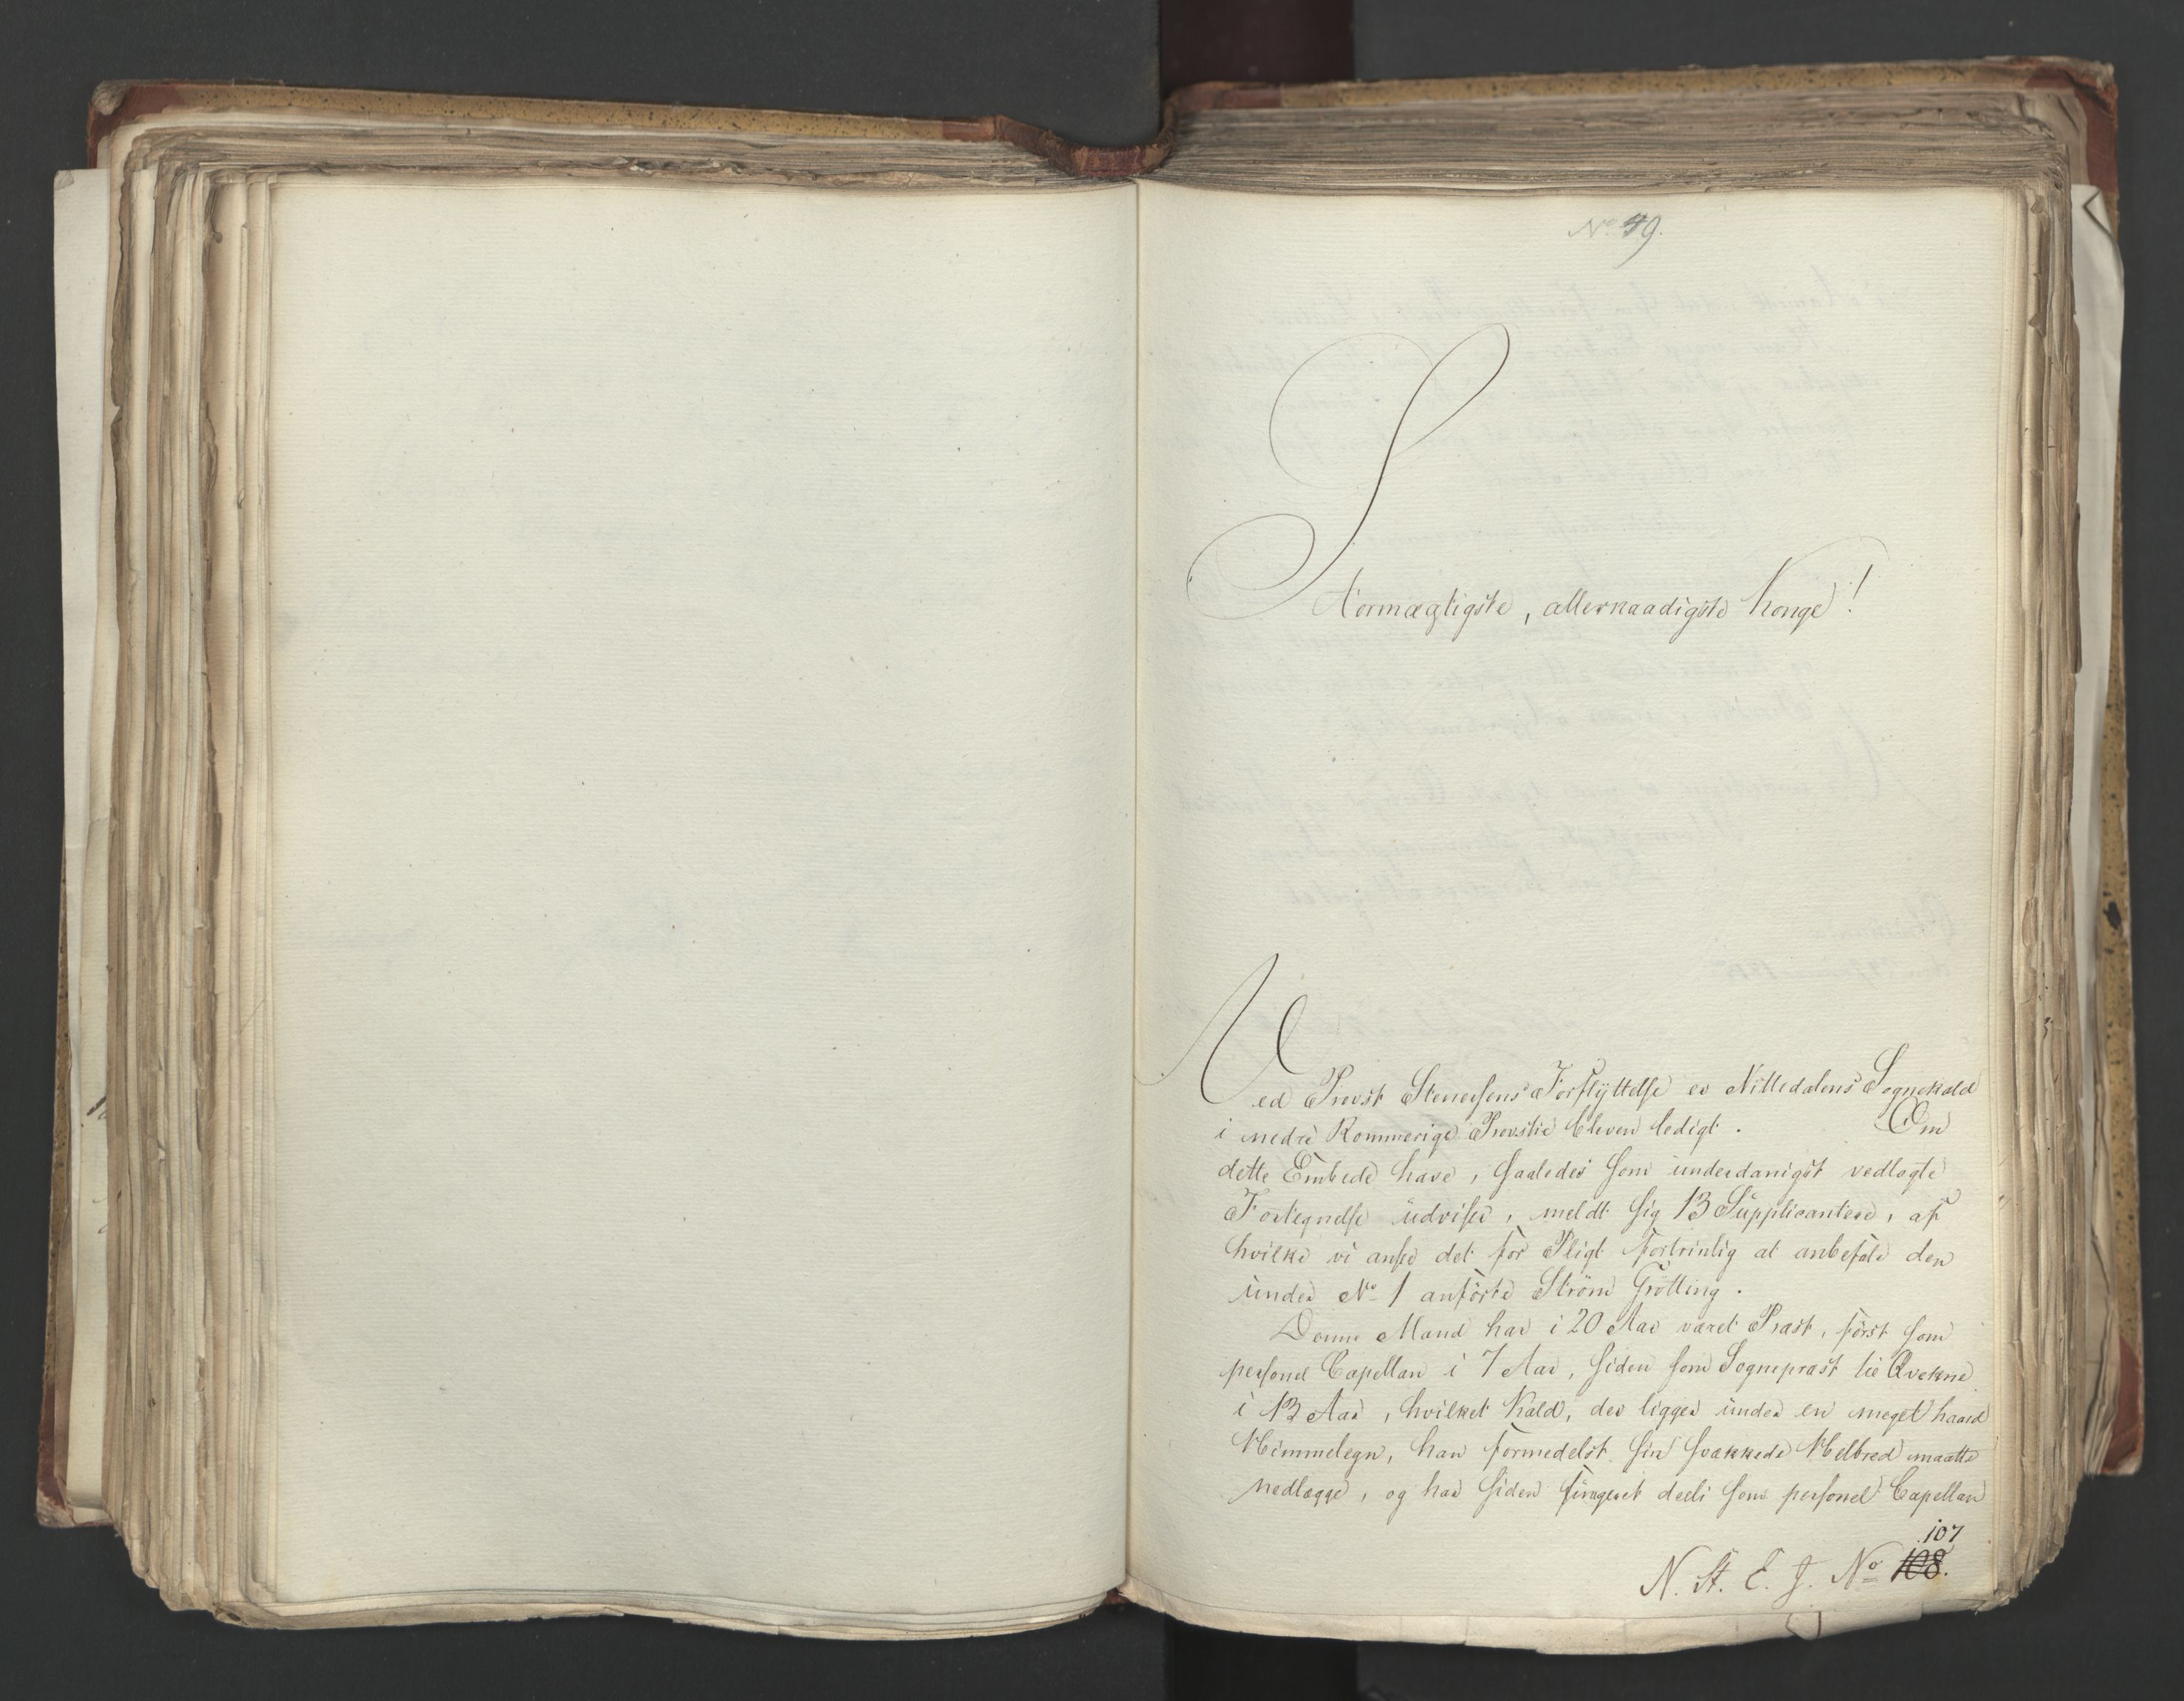 No 49.
Stormægtigste, allernaadigste Konge!
Ved Provst Stenersens Forflyttelse er Nittedalens Sognekald
i nedre Rommerige Provstie bleven ledigt. Om
dette Embede have, saaledes som underdanigst vedlagte
Fortegnelse udviser, meldt sig 13 Supplicantere, af
hvilke vi ansee det for Pligt fortrinlig at anbefale den
under No 1 anförte Ström Grötting.
Denne Mand har i 20 Aar været Præst, först som
personel Capellan i 7 Aar, siden som Sognepræst til Qvekne
i 13 Aar, hvilket Kald, der ligger under en meget haard
Himmelegn, han formedelst sin svækkede Helbred maatte
nedlægge, og har siden fungeret deels som personel Capellan
107
N. St. E. J. No 108.